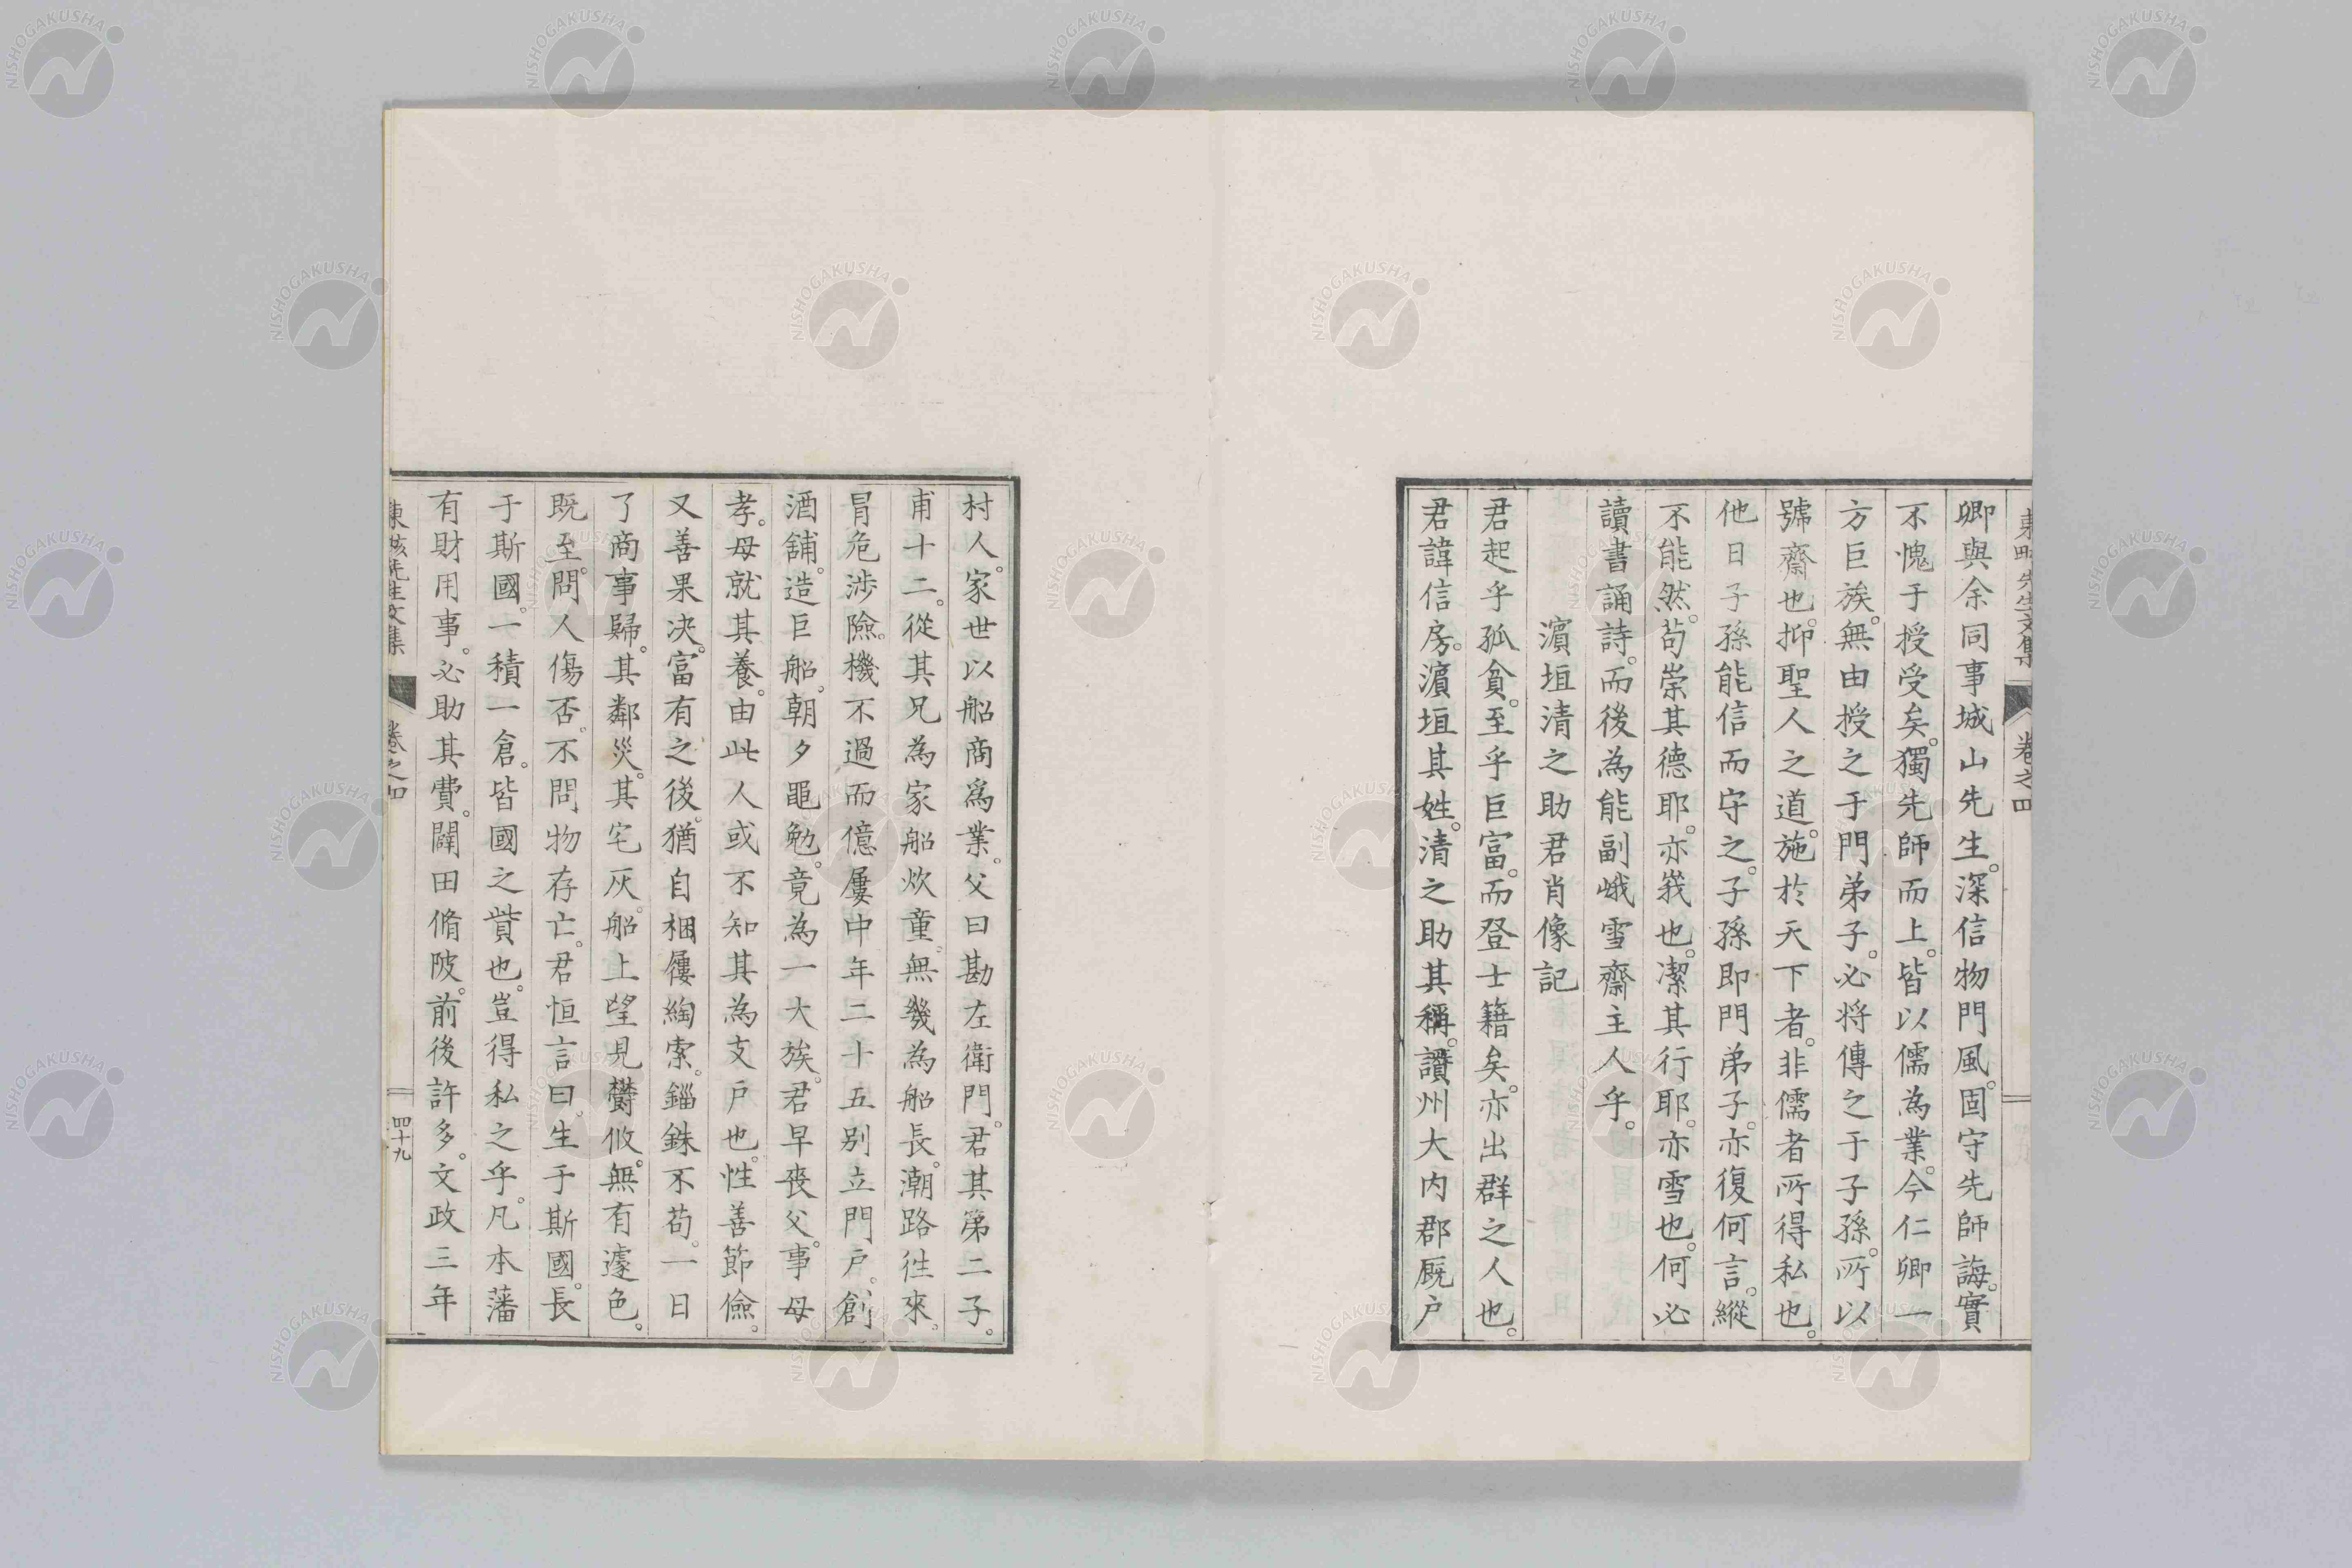 卿與余同事城山先生。深信物門風。固守先師誨。實
不愧于授受矣。獨先師而上。皆以儒為業。今仁卿一
方巨族。無由授之于門弟子。必将傳之于子孫。所以
號齋也。抑聖人之道。施於天下者。非儒者所得私也。
他日子孫能信而守之。子孫即門弟子。亦復何言。縱
不能然。苟崇其德耶。亦峩也。潔其行耶。亦雪也。何必
讀書誦詩。而後為能副峨雪齋主人乎。
濵垣清之助君肖像記
君起乎孤貧。至乎巨富。而登士籍矣。亦出群之人也。
君諱信房。濵垣其姓。清之助其稱。讚州大内郡厩戸
村人。家世以船商為業。父曰勘左衛門。君其第二子。
甫十二。從其兄為家船炊童。無幾為船長。潮路往來。
冒危涉險。機不過而億屢中年二十五别立門戸。創
酒舖。造巨船。朝夕黽勉。竟為一大族。君早喪父。事母
孝。母就其養。由此人或不知其為支戸也。性善節儉。
又善果决。富有之後。猶自梱屨綯索。錙銖不苟。一日
了商事歸。其鄰災。其宅灰。船上望見欝攸。無有遽色。
既至。問人傷否。不問物存亡。君恒言曰。生于斯國。長
于斯國。一積一倉。皆國之貲也。豈得私之乎。凡本藩
有財用事。必助其費。闢田脩陂。前後許多。文政三年
卷之四
四十九